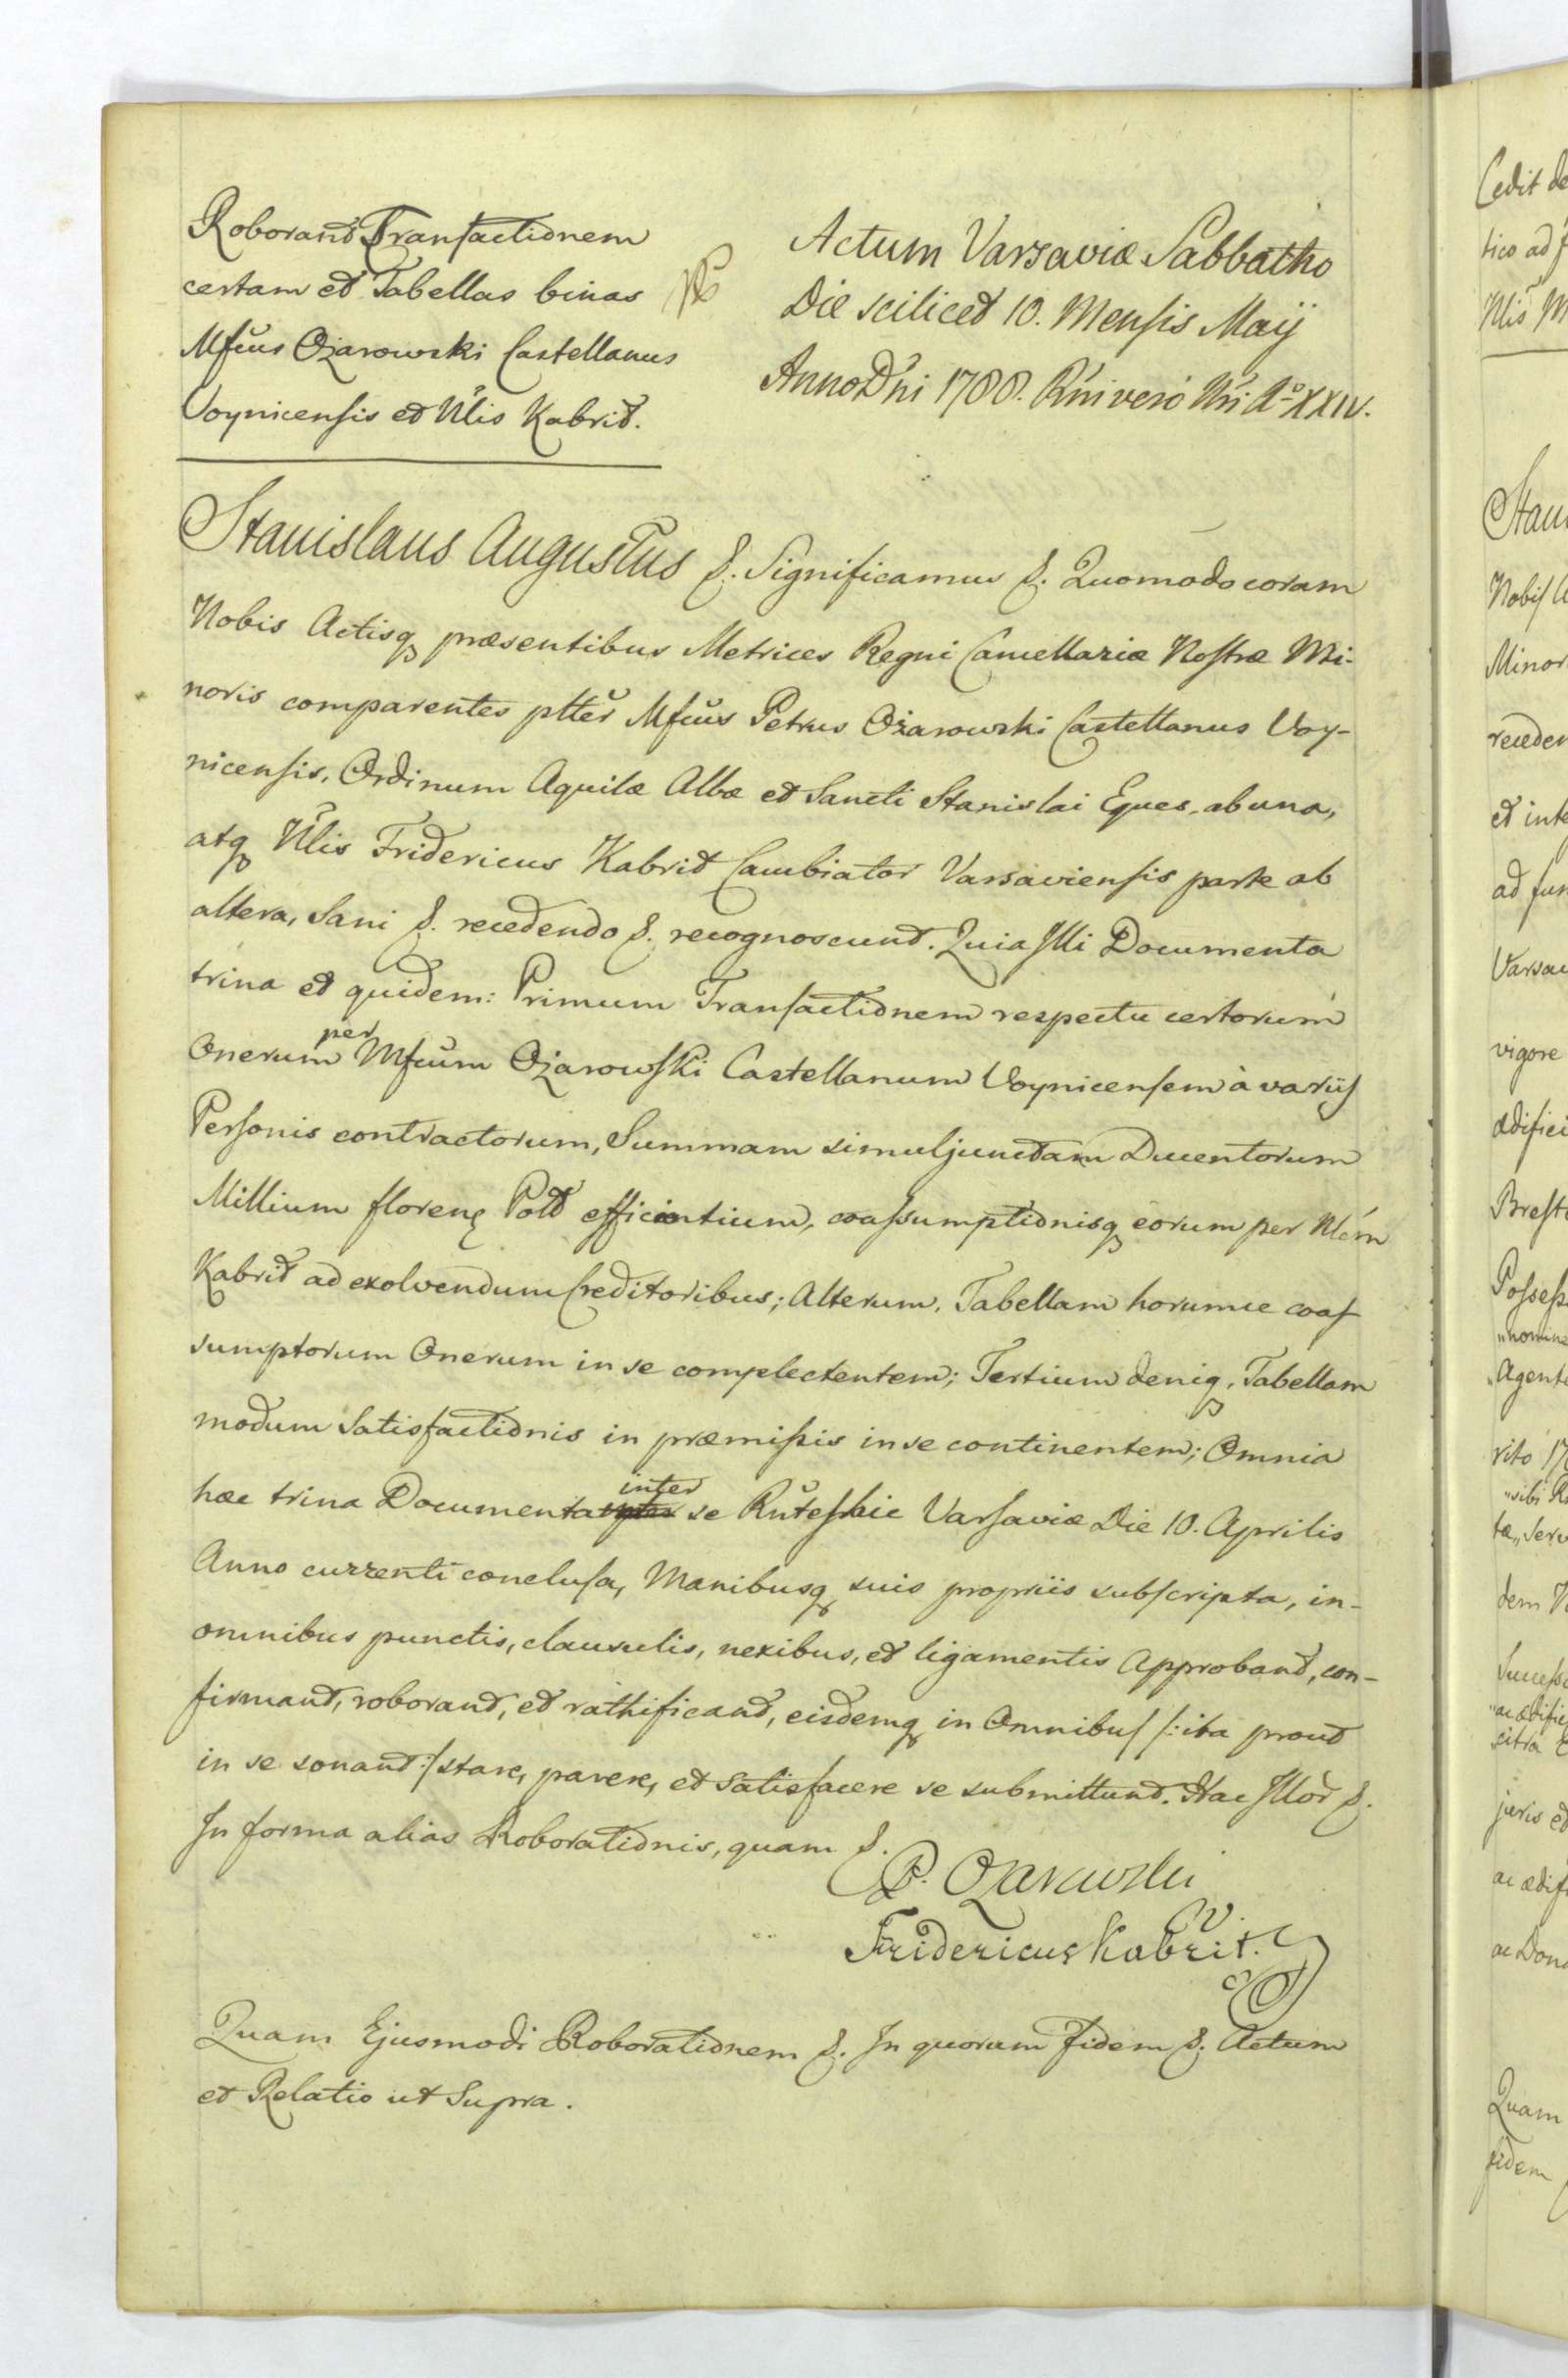 Roborand Transactionem
certam et Tabellas binas
Mfcus Ożarowski Castellanus
Voynicensis et Nlis Kabrit.
Actum Varsaviæ Sabbatho
Die scilicet 10. Mensis Maij
Anno Dni 1788. Rni vero Nri Ao XXIV.
Stanislaus Augustus &. Significamus &. Quomodo coram
Nobis Actisq præsentibus Metrices Regni Cancellariæ Nostræ Mi-
noris comparentes ptter Mfcus Petrus Ożarowski Castellanus Voy-
nicensis, Ordinum Aquilæ Albæ et Sancti Stanislai Eques, ab una,
atq Nlis Fridericus Kabrit Cambiator Varsaviensis parte ab
altera, Sani &. recedendo &. recognoscunt. Quia Illi Documenta
trina et quidem: Primum Transactionem respectu certorum
Onerum per Mfcum Ożarowski Castellanum Voynicensem à variis
Personis contractorum, Summam simul junctam Ducentorum
Millium floreng Pold efficientium, coassumptionisq eorum per Nlem
Kabrit ad exolvendum Creditoribus; Alterum, Tabellam horumce coas
sumptorum Onerum in se complectentem; Tertium deniq, Tabellam
modum Satisfactionis in præmissis in se continentem; Omnia
hæc trina Documenta inter se Rntes hic Varsaviæ Die 10. Aprilis
Anno currenti conclusa, Manibusq suis propriis subscripta, in-
omnibus punctis, clausulis, nexibus, et ligamentis Approbant, con-
firmant, roborant, et rathificant, eisdemq in Omnibus /: ita prout
in se sonant :/ stare, parere, et Satisfacere se submittunt. Hac Illor &.
In forma alias Roborationis, quam &.
P. Ożarowski
CV.
Fridericus Kabrit.
Quam Ejusmodi Roborationem &. In quorum fidem &. Actum
et Relatio ut Supra.